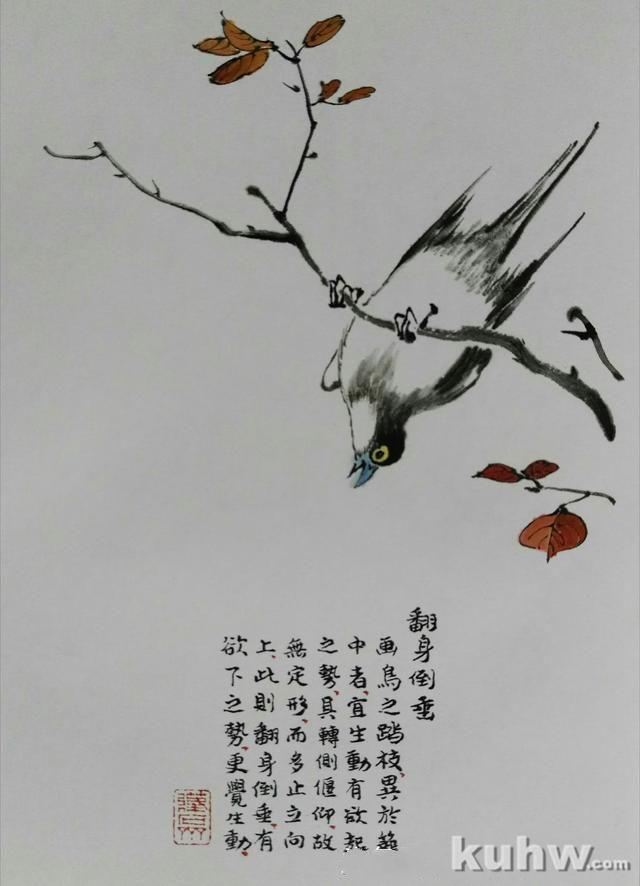 翻身倒垂
画鳥之踏枝、異於
中者、宜生動有欲起
之勢、具轉側偃仰、故
無定形、而多止立向
上、此則翻身倒垂、有
欲下之勢、更覺生動、
kuhw.com